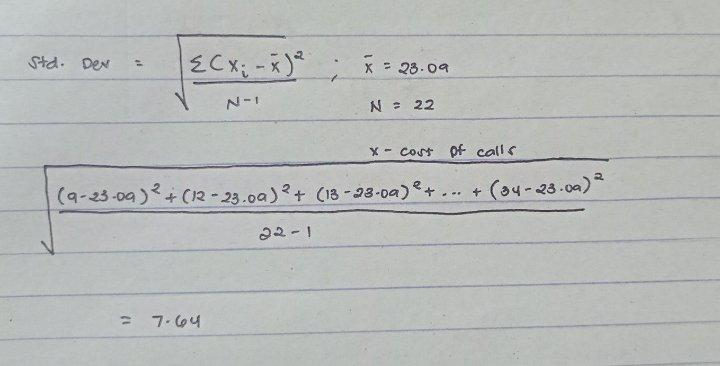 Std. Dev = √ Σ(xᵢ - x̄)² / N-1 ; x̄ = 23.09
N = 22
x - cost of calls
√ (9-23.09)² + (12-23.09)² + (13-23.09)² + ... + (34-23.09)² / 22-1
= 7.64